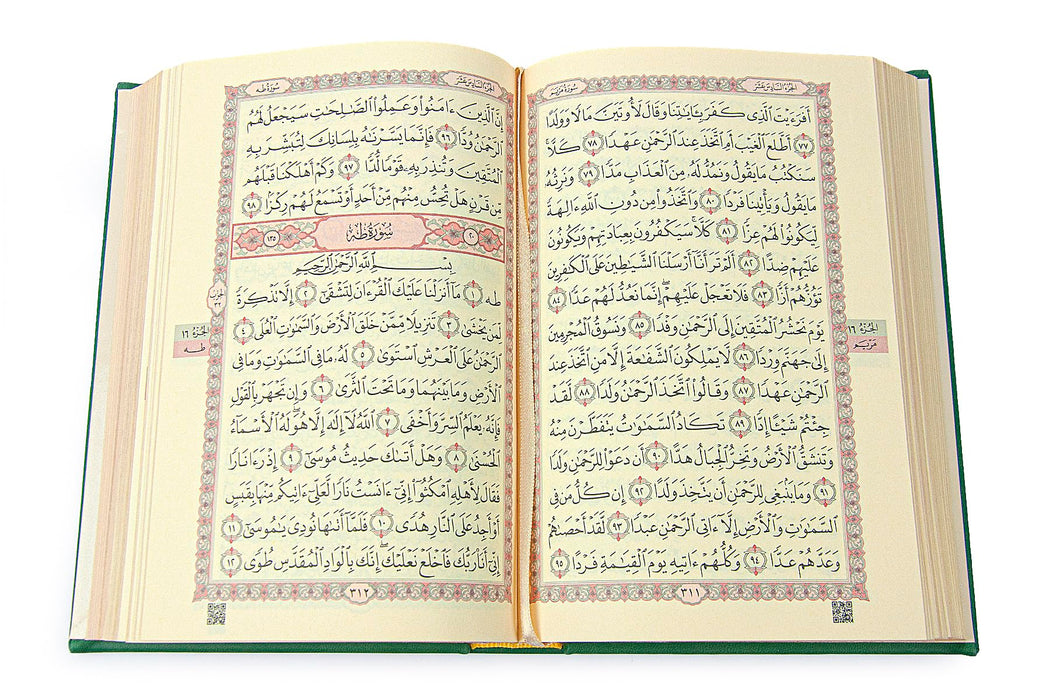 الجزء السادس عشر
سورة مريم
أَفَرَءَيْتَ ٱلَّذِى كَفَرَ بِـَٔايَـٰتِنَا وَقَالَ لَأُوتَيَنَّ مَالًا وَوَلَدًا
٧٧ أَطَّلَعَ ٱلْغَيْبَ أَمِ ٱتَّخَذَ عِندَ ٱلرَّحْمَـٰنِ عَهْدًا ٧٨ كَلَّا
سَنَكْتُبُ مَا يَقُولُ وَنَمُدُّ لَهُۥ مِنَ ٱلْعَذَابِ مَدًّا ٧٩ وَنَرِثُهُۥ
مَا يَقُولُ وَيَأْتِينَا فَرْدًا ٨٠ وَٱتَّخَذُوا۟ مِن دُونِ ٱللَّهِ ءَالِهَةً
لِّيَكُونُوا۟ لَهُمْ عِزًّا ٨١ كَلَّا سَيَكْفُرُونَ بِعِبَادَتِهِمْ وَيَكُونُونَ
عَلَيْهِمْ ضِدًّا ٨٢ أَلَمْ تَرَ أَنَّآ أَرْسَلْنَا ٱلشَّيَـٰطِينَ عَلَى ٱلْكَـٰفِرِينَ
تَؤُزُّهُمْ أَزًّا ٨٣ فَلَا تَعْجَلْ عَلَيْهِمْ إِنَّمَا نَعُدُّ لَهُمْ عَدًّا ٨٤
يَوْمَ نَحْشُرُ ٱلْمُتَّقِينَ إِلَى ٱلرَّحْمَـٰنِ وَفْدًا ٨٥ وَنَسُوقُ ٱلْمُجْرِمِينَ
إِلَىٰ جَهَنَّمَ وِرْدًا ٨٦ لَّا يَمْلِكُونَ ٱلشَّفَـٰعَةَ إِلَّا مَنِ ٱتَّخَذَ عِندَ
ٱلرَّحْمَـٰنِ عَهْدًا ٨٧ وَقَالُوا۟ ٱتَّخَذَ ٱلرَّحْمَـٰنُ وَلَدًا ٨٨ لَّقَدْ
جِئْتُمْ شَيْـًٔا إِدًّا ٨٩ تَكَادُ ٱلسَّمَـٰوَٰتُ يَتَفَطَّرْنَ مِنْهُ
وَتَنشَقُّ ٱلْأَرْضُ وَتَخِرُّ ٱلْجِبَالُ هَدًّا ٩٠ أَن دَعَوْا۟ لِلرَّحْمَـٰنِ وَلَدًا
٩١ وَمَا يَنۢبَغِى لِلرَّحْمَـٰنِ أَن يَتَّخِذَ وَلَدًا ٩٢ إِن كُلُّ مَن فِى
ٱلسَّمَـٰوَٰتِ وَٱلْأَرْضِ إِلَّآ ءَاتِى ٱلرَّحْمَـٰنِ عَبْدًا ٩٣ لَّقَدْ أَحْصَىٰهُمْ
وَعَدَّهُمْ عَدًّا ٩٤ وَكُلُّهُمْ ءَاتِيهِ يَوْمَ ٱلْقِيَـٰمَةِ فَرْدًا ٩٥
٣١١
الجزء ١٦
مريم
الجزء السادس عشر
سورة طه
إِنَّ ٱلَّذِينَ ءَامَنُوا۟ وَعَمِلُوا۟ ٱلصَّـٰلِحَـٰتِ سَيَجْعَلُ لَهُمُ
ٱلرَّحْمَـٰنُ وُدًّا ٩٦ فَإِنَّمَا يَسَّرْنَـٰهُ بِلِسَانِكَ لِتُبَشِّرَ بِهِ
ٱلْمُتَّقِينَ وَتُنذِرَ بِهِۦ قَوْمًا لُّدًّا ٩٧ وَكَمْ أَهْلَكْنَا قَبْلَهُم
مِّن قَرْنٍ هَلْ تُحِسُّ مِنْهُم مِّنْ أَحَدٍ أَوْ تَسْمَعُ لَهُمْ رِكْزًۢا ٩٨
٢٠ سُورَةُ طه ١٣٥
بِسْمِ ٱللَّهِ ٱلرَّحْمَـٰنِ ٱلرَّحِيمِ
طه ١ مَآ أَنزَلْنَا عَلَيْكَ ٱلْقُرْءَانَ لِتَشْقَىٰٓ ٢ إِلَّا تَذْكِرَةً
لِّمَن يَخْشَىٰ ٣ تَنزِيلًا مِّمَّنْ خَلَقَ ٱلْأَرْضَ وَٱلسَّمَـٰوَٰتِ ٱلْعُلَى ٤
ٱلرَّحْمَـٰنُ عَلَى ٱلْعَرْشِ ٱسْتَوَىٰ ٥ لَهُۥ مَا فِى ٱلسَّمَـٰوَٰتِ وَمَا فِى
ٱلْأَرْضِ وَمَا بَيْنَهُمَا وَمَا تَحْتَ ٱلثَّرَىٰ ٦ وَإِن تَجْهَرْ بِٱلْقَوْلِ
فَإِنَّهُۥ يَعْلَمُ ٱلسِّرَّ وَأَخْفَى ٧ ٱللَّهُ لَآ إِلَـٰهَ إِلَّا هُوَ لَهُ ٱلْأَسْمَآءُ
ٱلْحُسْنَىٰ ٨ وَهَلْ أَتَىٰكَ حَدِيثُ مُوسَىٰٓ ٩ إِذْ رَءَا نَارًا
فَقَالَ لِأَهْلِهِ ٱمْكُثُوٓا۟ إِنِّىٓ ءَانَسْتُ نَارًا لَّعَلِّىٓ ءَاتِيكُم مِّنْهَا بِقَبَسٍ
أَوْ أَجِدُ عَلَى ٱلنَّارِ هُدًى ١٠ فَلَمَّآ أَتَىٰهَا نُودِىَ يَـٰمُوسَىٰٓ ١١
إِنِّىٓ أَنَا۠ رَبُّكَ فَٱخْلَعْ نَعْلَيْكَ إِنَّكَ بِٱلْوَادِ ٱلْمُقَدَّسِ طُوًى ١٢
٣١٢
الحزب
٣٢
الجزء ١٦
طه